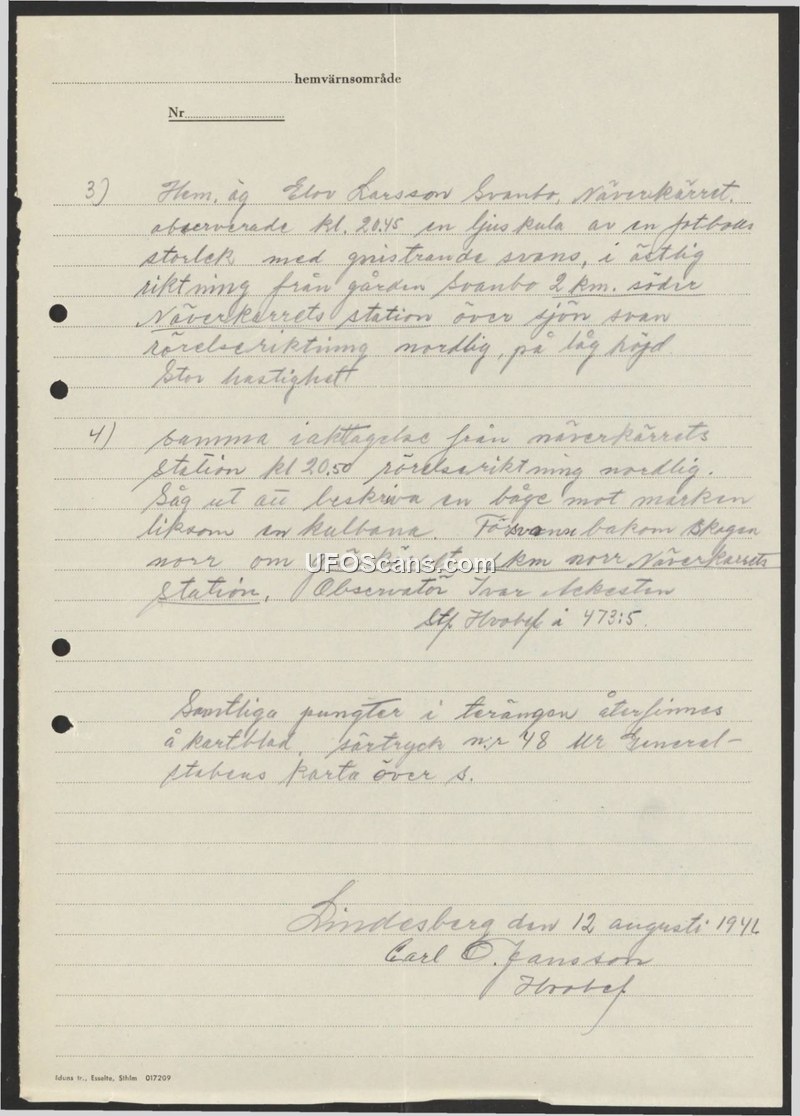 hemvärnsområde
Nr
3) Hem. äg Elov Larsson Svanbo, Näverkärret.
observerade kl. 20.45 en ljuskula av en fotbolls
storlek med gnistrande svans, i östlig
riktning från gården Svanbo 2 km. söder
Näverkärrets station över sjön svan
rörelseriktning nordlig, på låg höjd
Stor hastighet
4) samma iakttagelse från näverkärrets
station kl 20.50 rörelseriktning nordlig.
Såg ut att beskriva en båge mot marken
liksom en kulbana. Försvann bakom skogen
norr om km norr Näverkärrets
station. Observatör Ivar
Stf. Hvobef i 473:5.
UFOScans.com
Samtliga pungter i terängen återfinnes
å kartblad, särtryck n:r 48 ur General-
stabens karta över S.
Lindesberg den 12 augusti 1946
Carl O. Jansson
Hvobef
Iduns tr., Esselte, Sthlm 017209